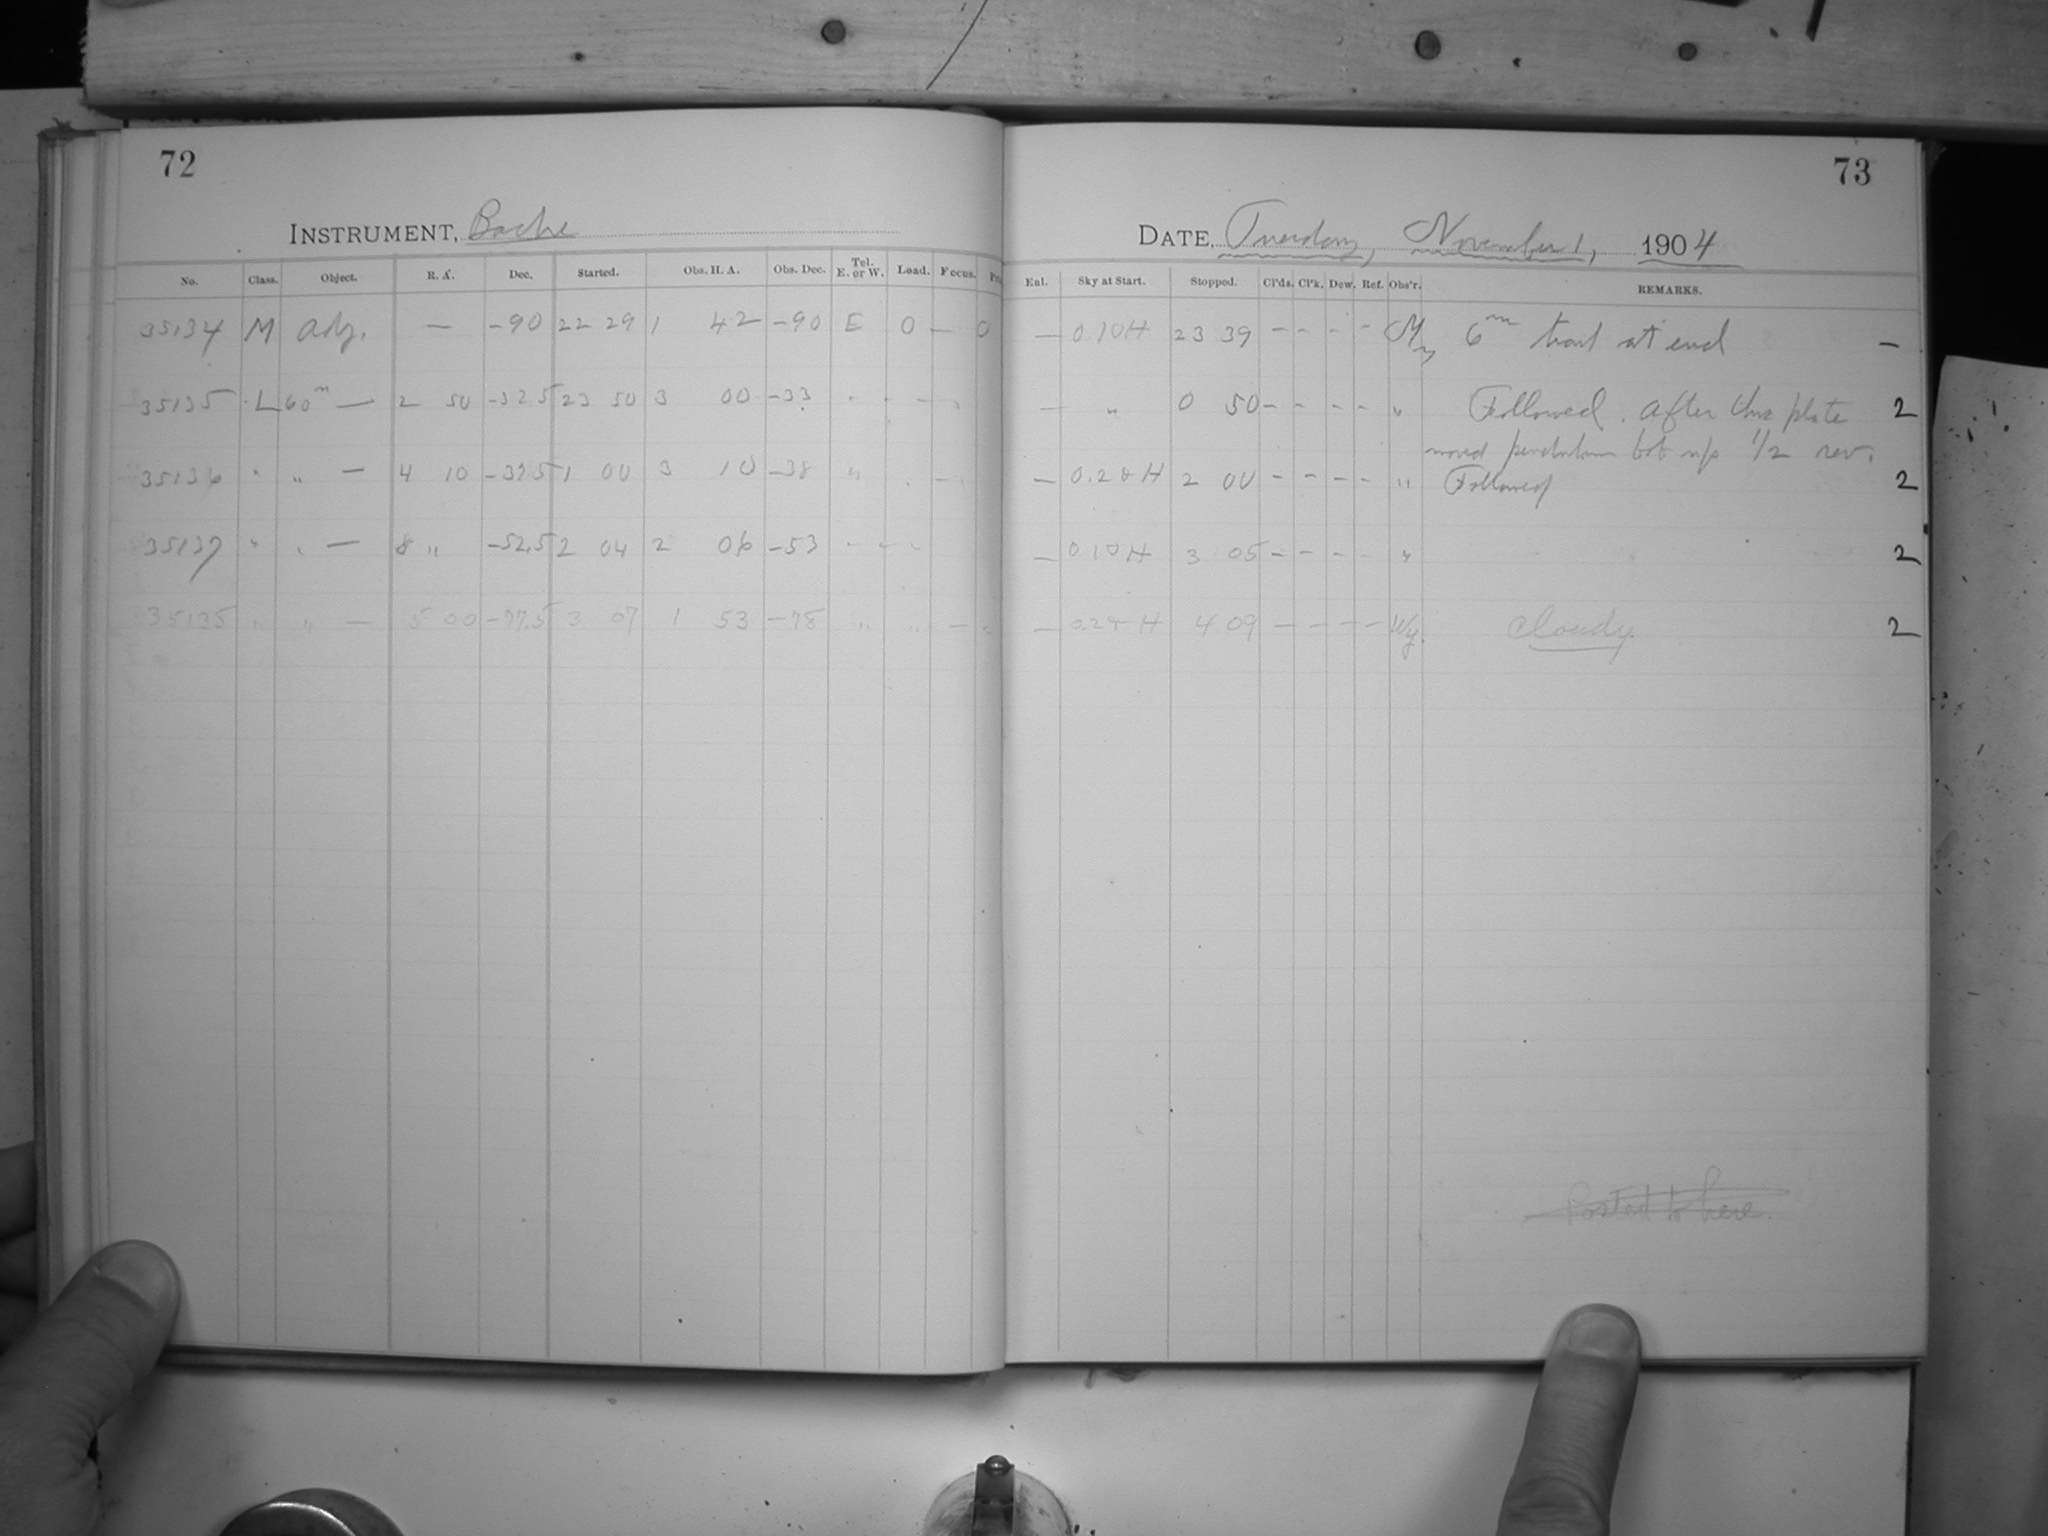 72
73
INSTRUMENT, Bache
DATE, Tuesday, November 1, 1904
No. Class. Object. R. A. Dec. Started. Obs. H. A. Obs. Dec. Tel. E. or W. Load. Focus. Enl. Sky at Start. Stopped. Cl'ds. Cl'k. Dew. Ref. Obs'r. REMARKS.
35134 M Adj. — -90 22 29 1 42 -90 E 0 — 0 — 0.10H 23 39 - - - - 6m trail at end -
35135 L 60m — 2 50 -32.5 23 50 3 00 -33 — " 0 50 - - - - " Followed. After this plate 2
moved pendulum bob up 1/2 rev.
35136 " " — 4 10 -37.5 1 00 3 10 -38 " — 0.2 H 2 00 - - - - " Followed 2
35137 " " — 8 " -52.5 2 04 2 06 -53 — 0.10H 3 05 - - - - " 2
35135 " " — 5 00 -77.5 3 07 1 53 -78 " " — " — 0.2 H 4 09 - - - - Wy. Cloudy. 2
Posted to here.